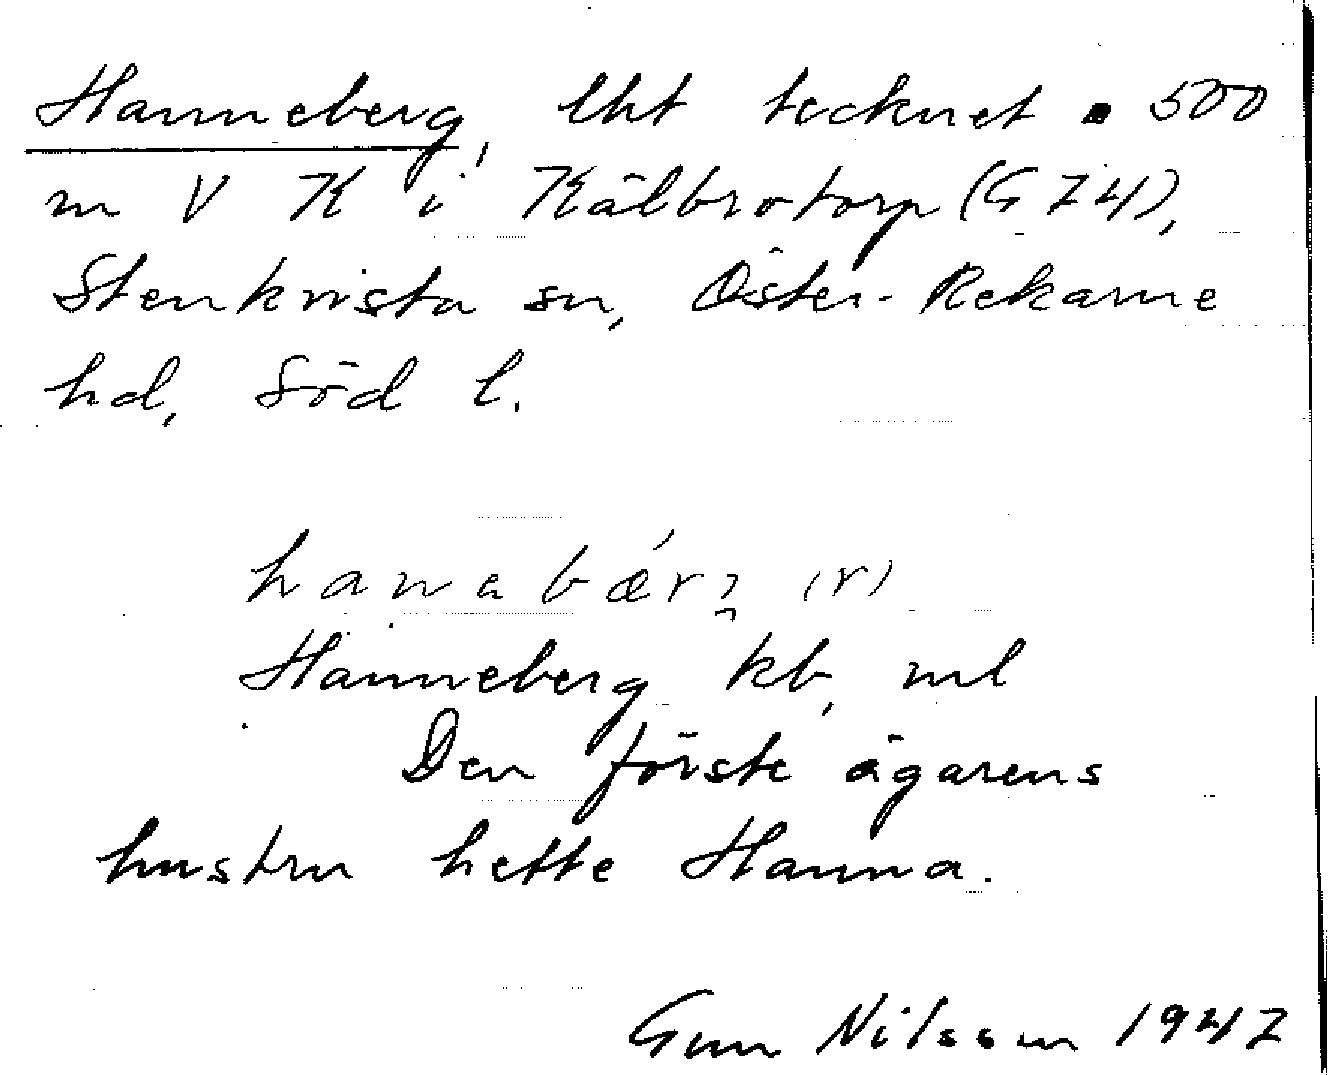 Hanneberg, lht tecknet ▪ 500
m V K i Kälbrotorp (G 74),
Stenkvista sn, Öster-Rekarne
hd, Söd l.
hanabǽrj (r)
Hanneberg kb, ml
Den förste ägarens
hustru hette Hanna.
Gun Nilsson 1947